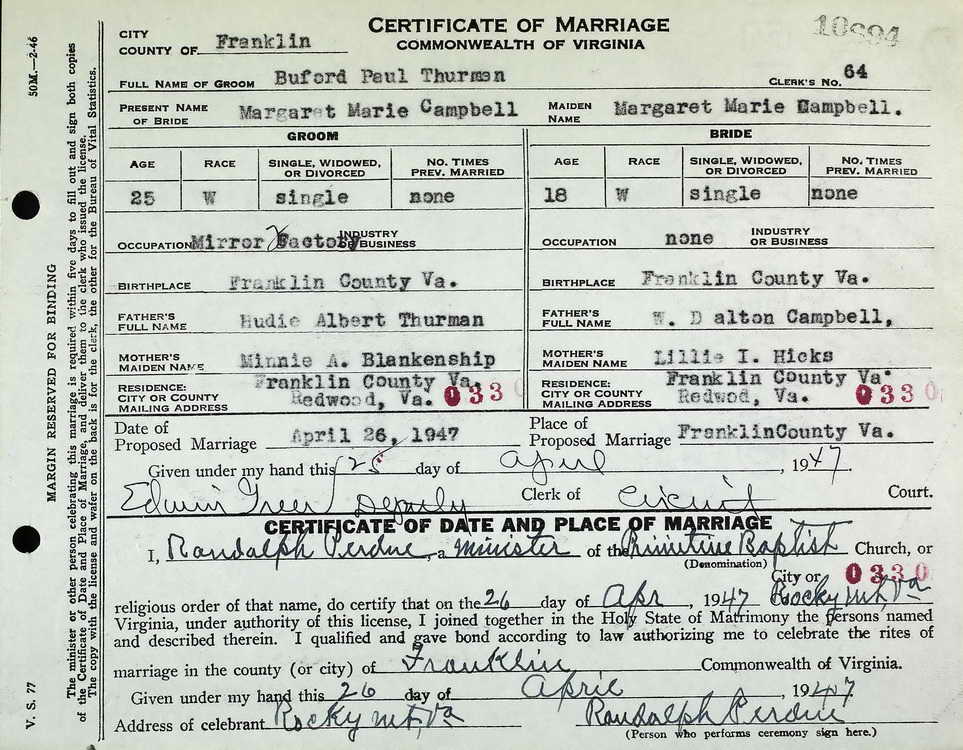 CERTIFICATE OF MARRIAGE
COMMONWEALTH OF VIRGINIA
CITY
COUNTY OF Franklin
FULL NAME OF GROOM Buford Paul Thurman CLERK'S NO. 64
PRESENT NAME OF BRIDE Margaret Marie Campbell MAIDEN NAME Margaret Marie Campbell.
GROOM BRIDE
AGE RACE SINGLE, WIDOWED, OR DIVORCED NO. TIMES PREV. MARRIED AGE RACE SINGLE, WIDOWED, OR DIVORCED NO. TIMES PREV. MARRIED
25 W single none 18 W single none
OCCUPATION Mirror Factory INDUSTRY OR BUSINESS OCCUPATION none INDUSTRY OR BUSINESS
BIRTHPLACE Franklin County Va. BIRTHPLACE Franklin County Va.
FATHER'S FULL NAME Hudie Albert Thurman FATHER'S FULL NAME W. D alton Campbell,
MOTHER'S MAIDEN NAME Minnie A. Blankenship MOTHER'S MAIDEN NAME Lillie I. Hicks
RESIDENCE: CITY OR COUNTY MAILING ADDRESS Franklin County Va. Redwood, Va. 033 RESIDENCE: CITY OR COUNTY MAILING ADDRESS Franklin County Va. Redwod, Va. 0330
Date of Proposed Marriage April 26, 1947 Place of Proposed Marriage FranklinCounty Va.
Given under my hand this 25 day of April, 1947.
Edwin Greer Deputy Clerk of Circuit Court.
CERTIFICATE OF DATE AND PLACE OF MARRIAGE
I, Randalph Perdue, a minister of the Primitive Baptist Church, or
(Denomination)
City or 0330
religious order of that name, do certify that on the 26 day of Apr, 1947 Rocky mt, Va
Virginia, under authority of this license, I joined together in the Holy State of Matrimony the persons named
and described therein. I qualified and gave bond according to law authorizing me to celebrate the rites of
marriage in the county (or city) of Franklin Commonwealth of Virginia.
Given under my hand this 26 day of April, 1947
Address of celebrant Rocky mt, Va Randalph Perdue
(Person who performs ceremony sign here.)
50M.—2-46
V. S. 77
MARGIN RESERVED FOR BINDING
The minister or other person celebrating this marriage is required within five days to fill out and sign both copies
of the Certificate of Date and Place of Marriage, and deliver them to the clerk who issued the license.
The copy with the license and wafer on the back is for the clerk, the other for the Bureau of Vital Statistics.